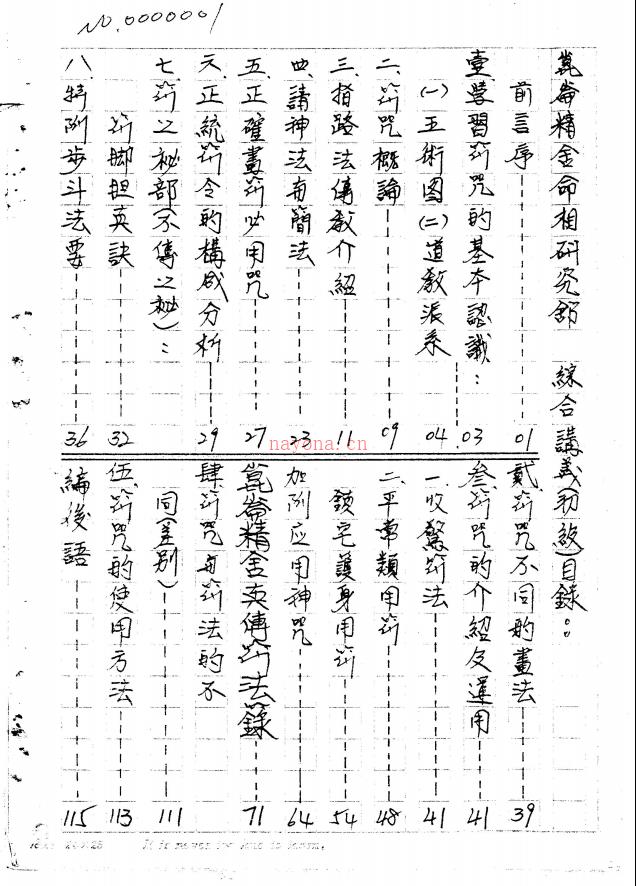 NO.0000001
崑崙精舍命相研究館 綜合講義(初級)目錄:
前言序 01
壹、學習符咒的基本認識: 03
(一)五術圖(二)道教派系 04
二、符咒概論 09
三、指路法傳教介紹 11
四、請神法與簡法 23
五、正確畫符必用咒 27
六、正統符令的構成分析 29
七、符之秘部(不傳之秘):
符脚胆英訣 32
八、特附步斗法要 36
貳、符咒不同的畫法 39
叁、符咒的介紹及運用 41
一、收驚符法 41
二、平常類用符 48
鎮宅護身用符 54
加附应用神咒 64
崑崙精舍真傳符法錄 71
肆、符咒与符法的不
同(差別) 111
伍、符咒的使用方法 113
編後語 115
nayona.cn